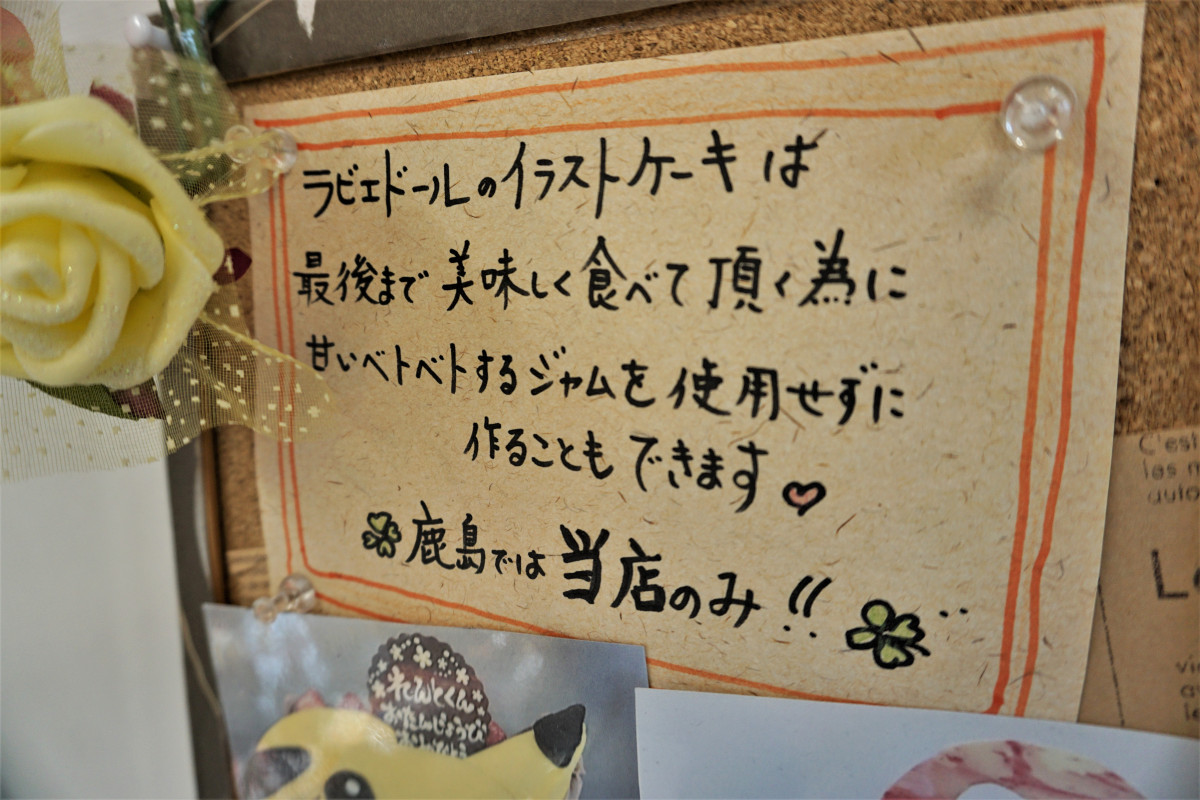 ラビエドールのイラストケーキは
最後まで美味しく食べて頂く為に
甘いベトベトするジャムを使用せずに
作ることもできます
鹿島では当店のみ!!
れんとくん
おたんじょうび
C'est